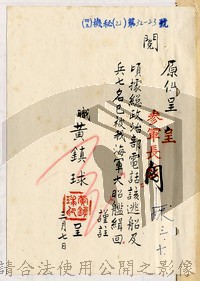 (四)機秘(乙)第32-23號
閱
原件呈
呈
參軍長閱
頃據總政治部電話該逃船及
兵七名已被我海軍大昭艦緝回
謹註
職 黃鎮球 呈
三月七日
請合法使用公開之影像